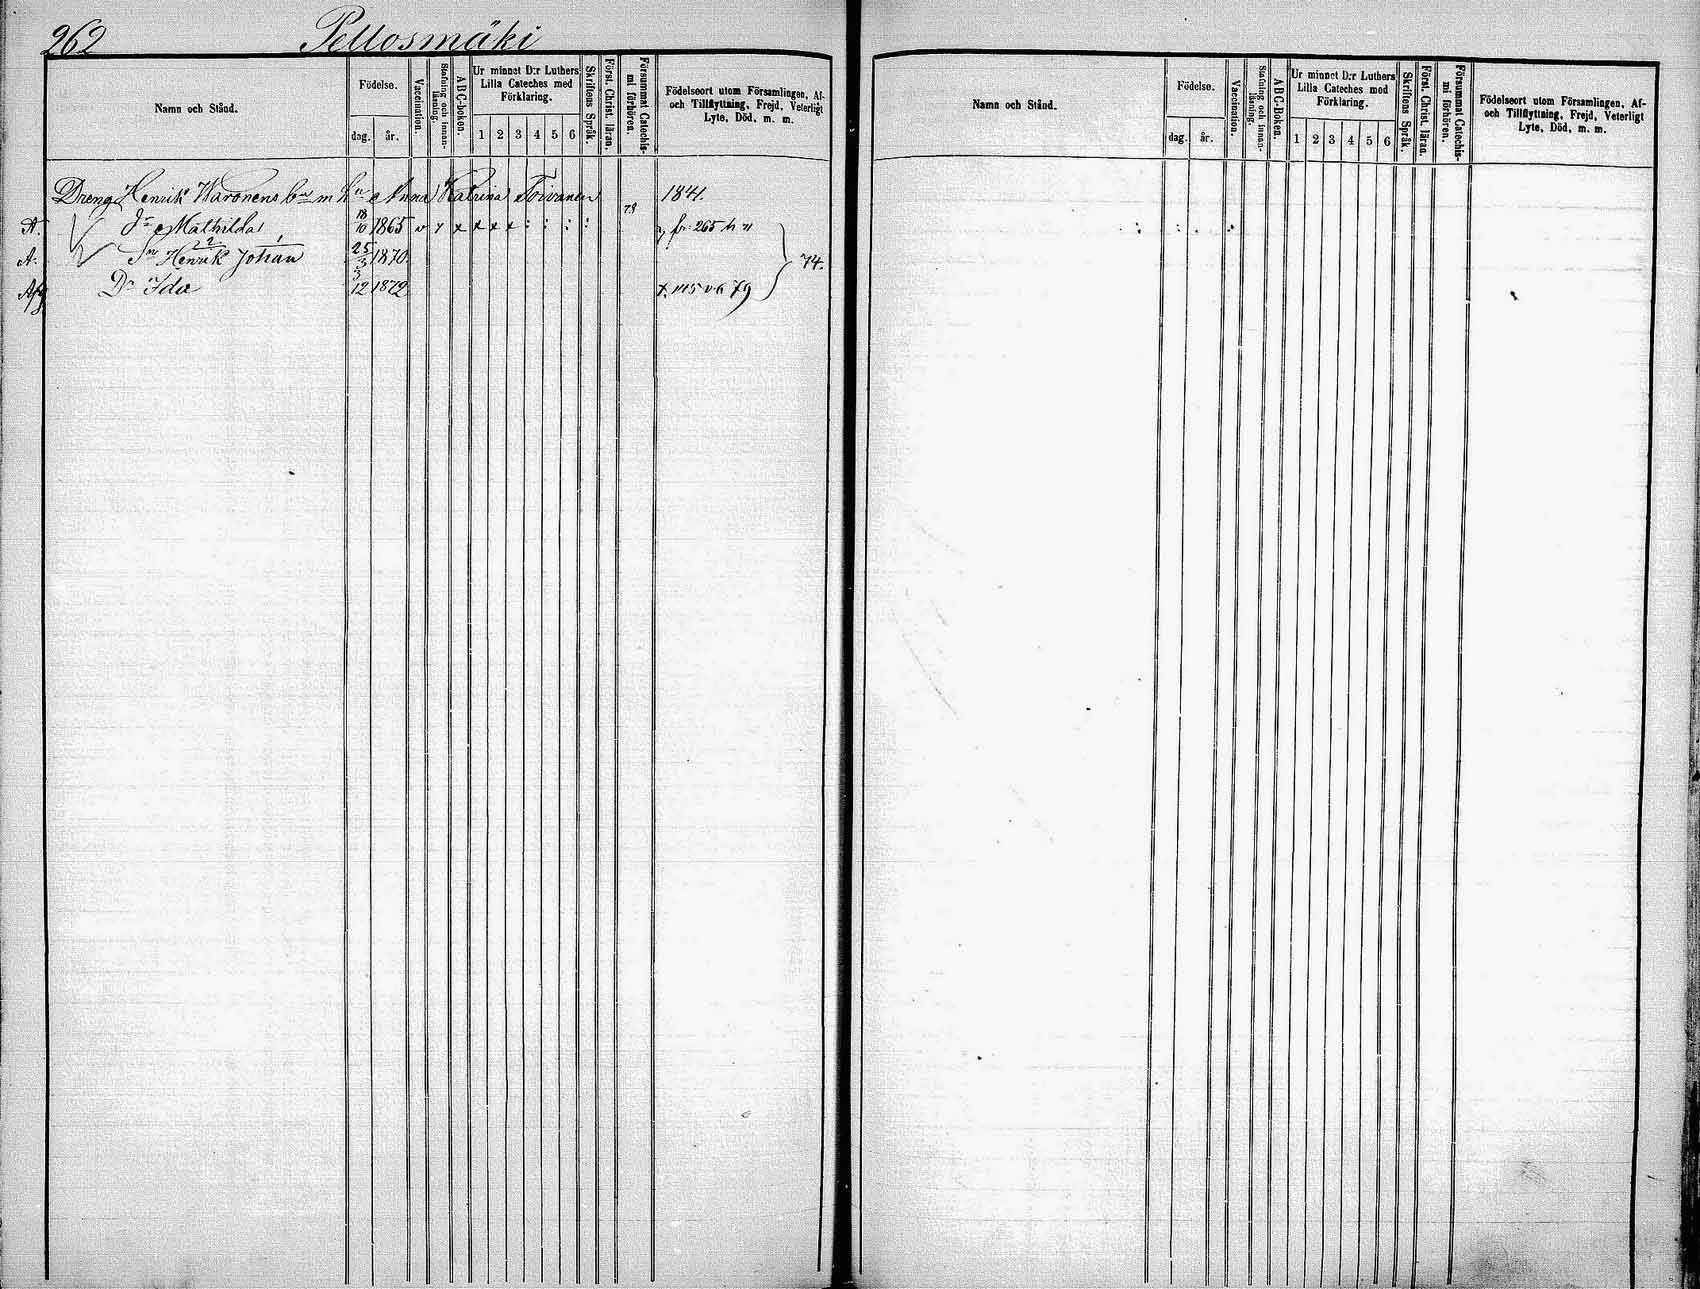 262 Pellosmäki
Namn och Stånd.
Födelse.
dag. år.
Vaccination.
Stafning och innanläsning.
ABC-boken.
Ur minnet D:r Luthers Lilla Cateches med Förklaring.
1 2 3 4 5 6
Skriftens Språk.
Först. Christ. läran.
Försummat Catechismi förhören.
Födelseort utom Församlingen, Af- och Tillflyttning, Frejd, Veterligt Lyte, Död, m. m.
Dreng Henrik Waronens barn m hu Anna Katrina Toivanen 1841.
A. Dr Mathilda 18/10 1865 v x x x x x : : : : 78 fr. 265
A. Sn Henrik Johan 25/3 1870 74.
Afg Dr Ida 3/12 1872 79
Namn och Stånd.
Födelse.
dag. år.
Vaccination.
Stafning och innanläsning.
ABC-boken.
Ur minnet D:r Luthers Lilla Cateches med Förklaring.
1 2 3 4 5 6
Skriftens Språk.
Först. Christ. läran.
Försummat Catechismi förhören.
Födelseort utom Församlingen, Af- och Tillflyttning, Frejd, Veterligt Lyte, Död, m. m.